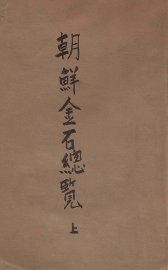 朝鮮金石總覽
上